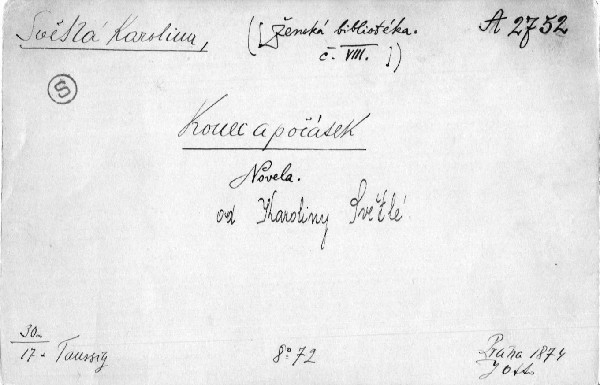 Světlá Karolina,
([Ženská bibliotéka.
č. VIII.])
A 2752
S
Konec a počátek
Novela.
od Karoliny Světlé
30.-
17.- Taussig
8° 72
Praha 1874